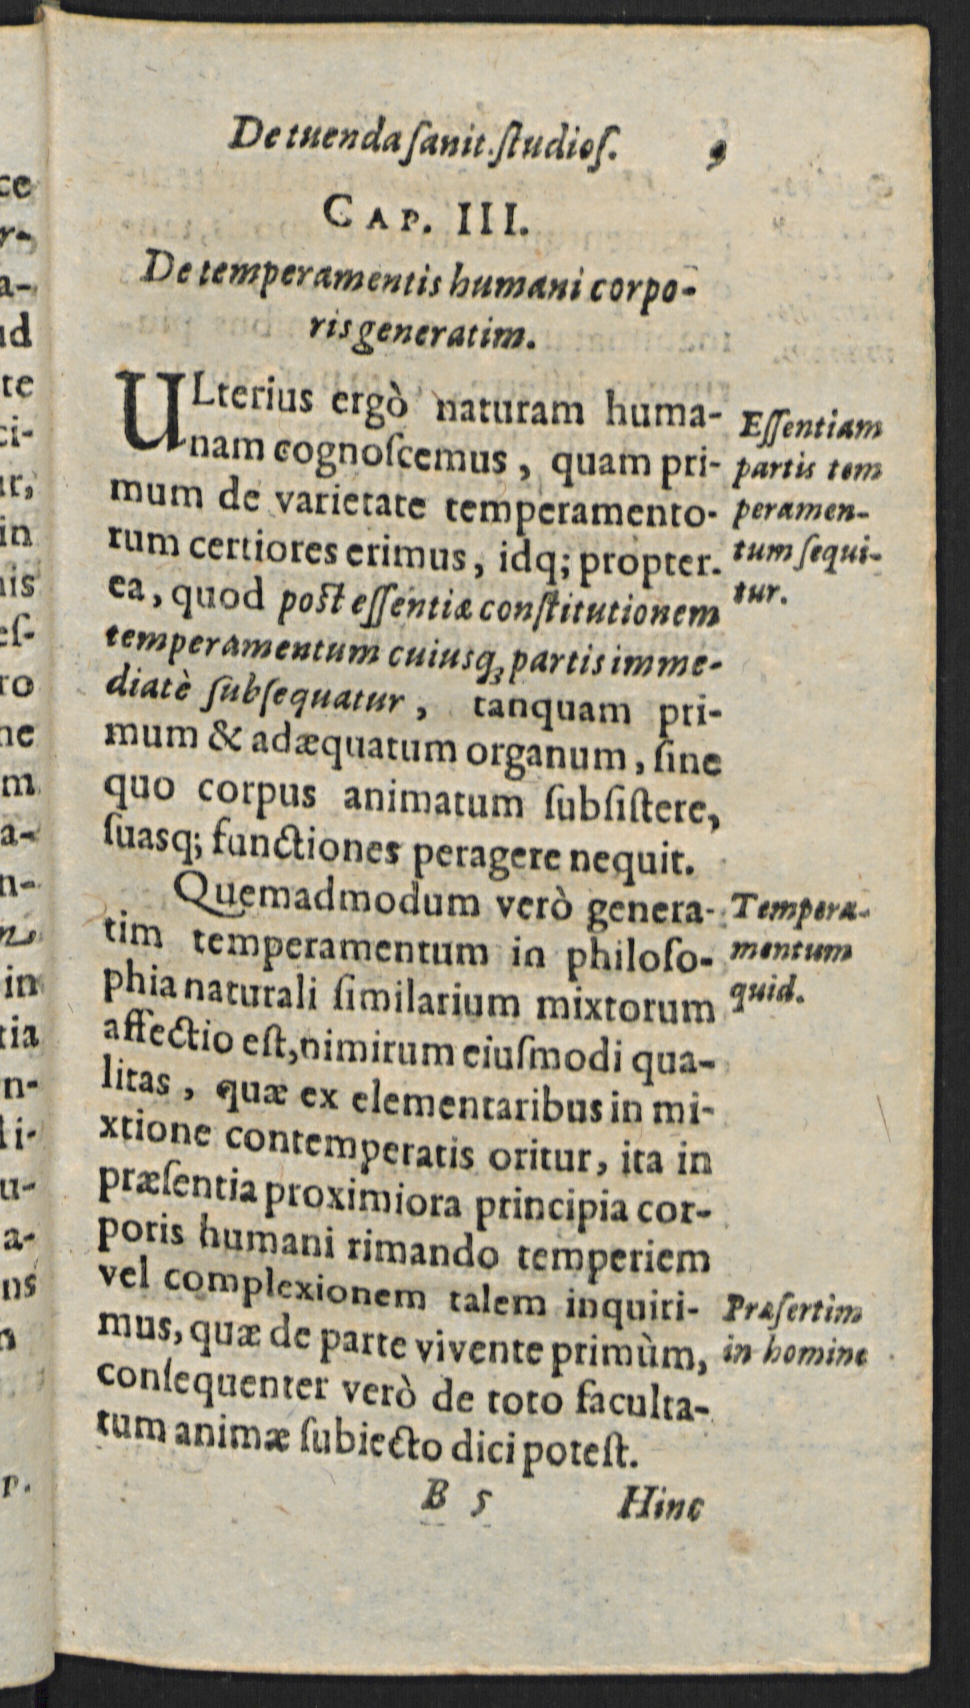 De tuenda ſanit. ſtudioſ. 9
CAP. III.
De temperamentis humani corpo-
ris generatim.
ULterius ergò naturam huma-
nam cognoſcemus, quam pri-
mum de varietate temperamento-
rum certiores erimus, idq; propter-
ea, quod poſt eſſentiæ conſtitutionem
temperamentum cuiusq; partis imme-
diatè ſubſequatur, tanquam pri-
mum & adæquatum organum, ſine
quo corpus animatum ſubſiſtere,
ſuasq; functiones peragere nequit.
Eſſentiam
partis tem
peramen-
tum ſequi-
tur.
Quemadmodum verò genera-
tim temperamentum in philoſo-
phia naturali ſimilarium mixtorum
affectio eſt, nimirum eiuſmodi qua-
litas, quæ ex elementaribus in mi-
xtione contemperatis oritur, ita in
præſentia proximiora principia cor-
poris humani rimando temperiem
vel complexionem talem inquiri-
mus, quæ de parte vivente primùm,
conſequenter verò de toto faculta-
tum animæ ſubiecto dici poteſt.
Tempera-
mentum
quid.
Præſertim
in homine
B 5 Hinc
ce
r-
a-
ud
te
ci-
ur,
in
nis
eſ-
ro
ne
m
a-
n-
in
tia
n-
li-
u-
a-
ns
p.